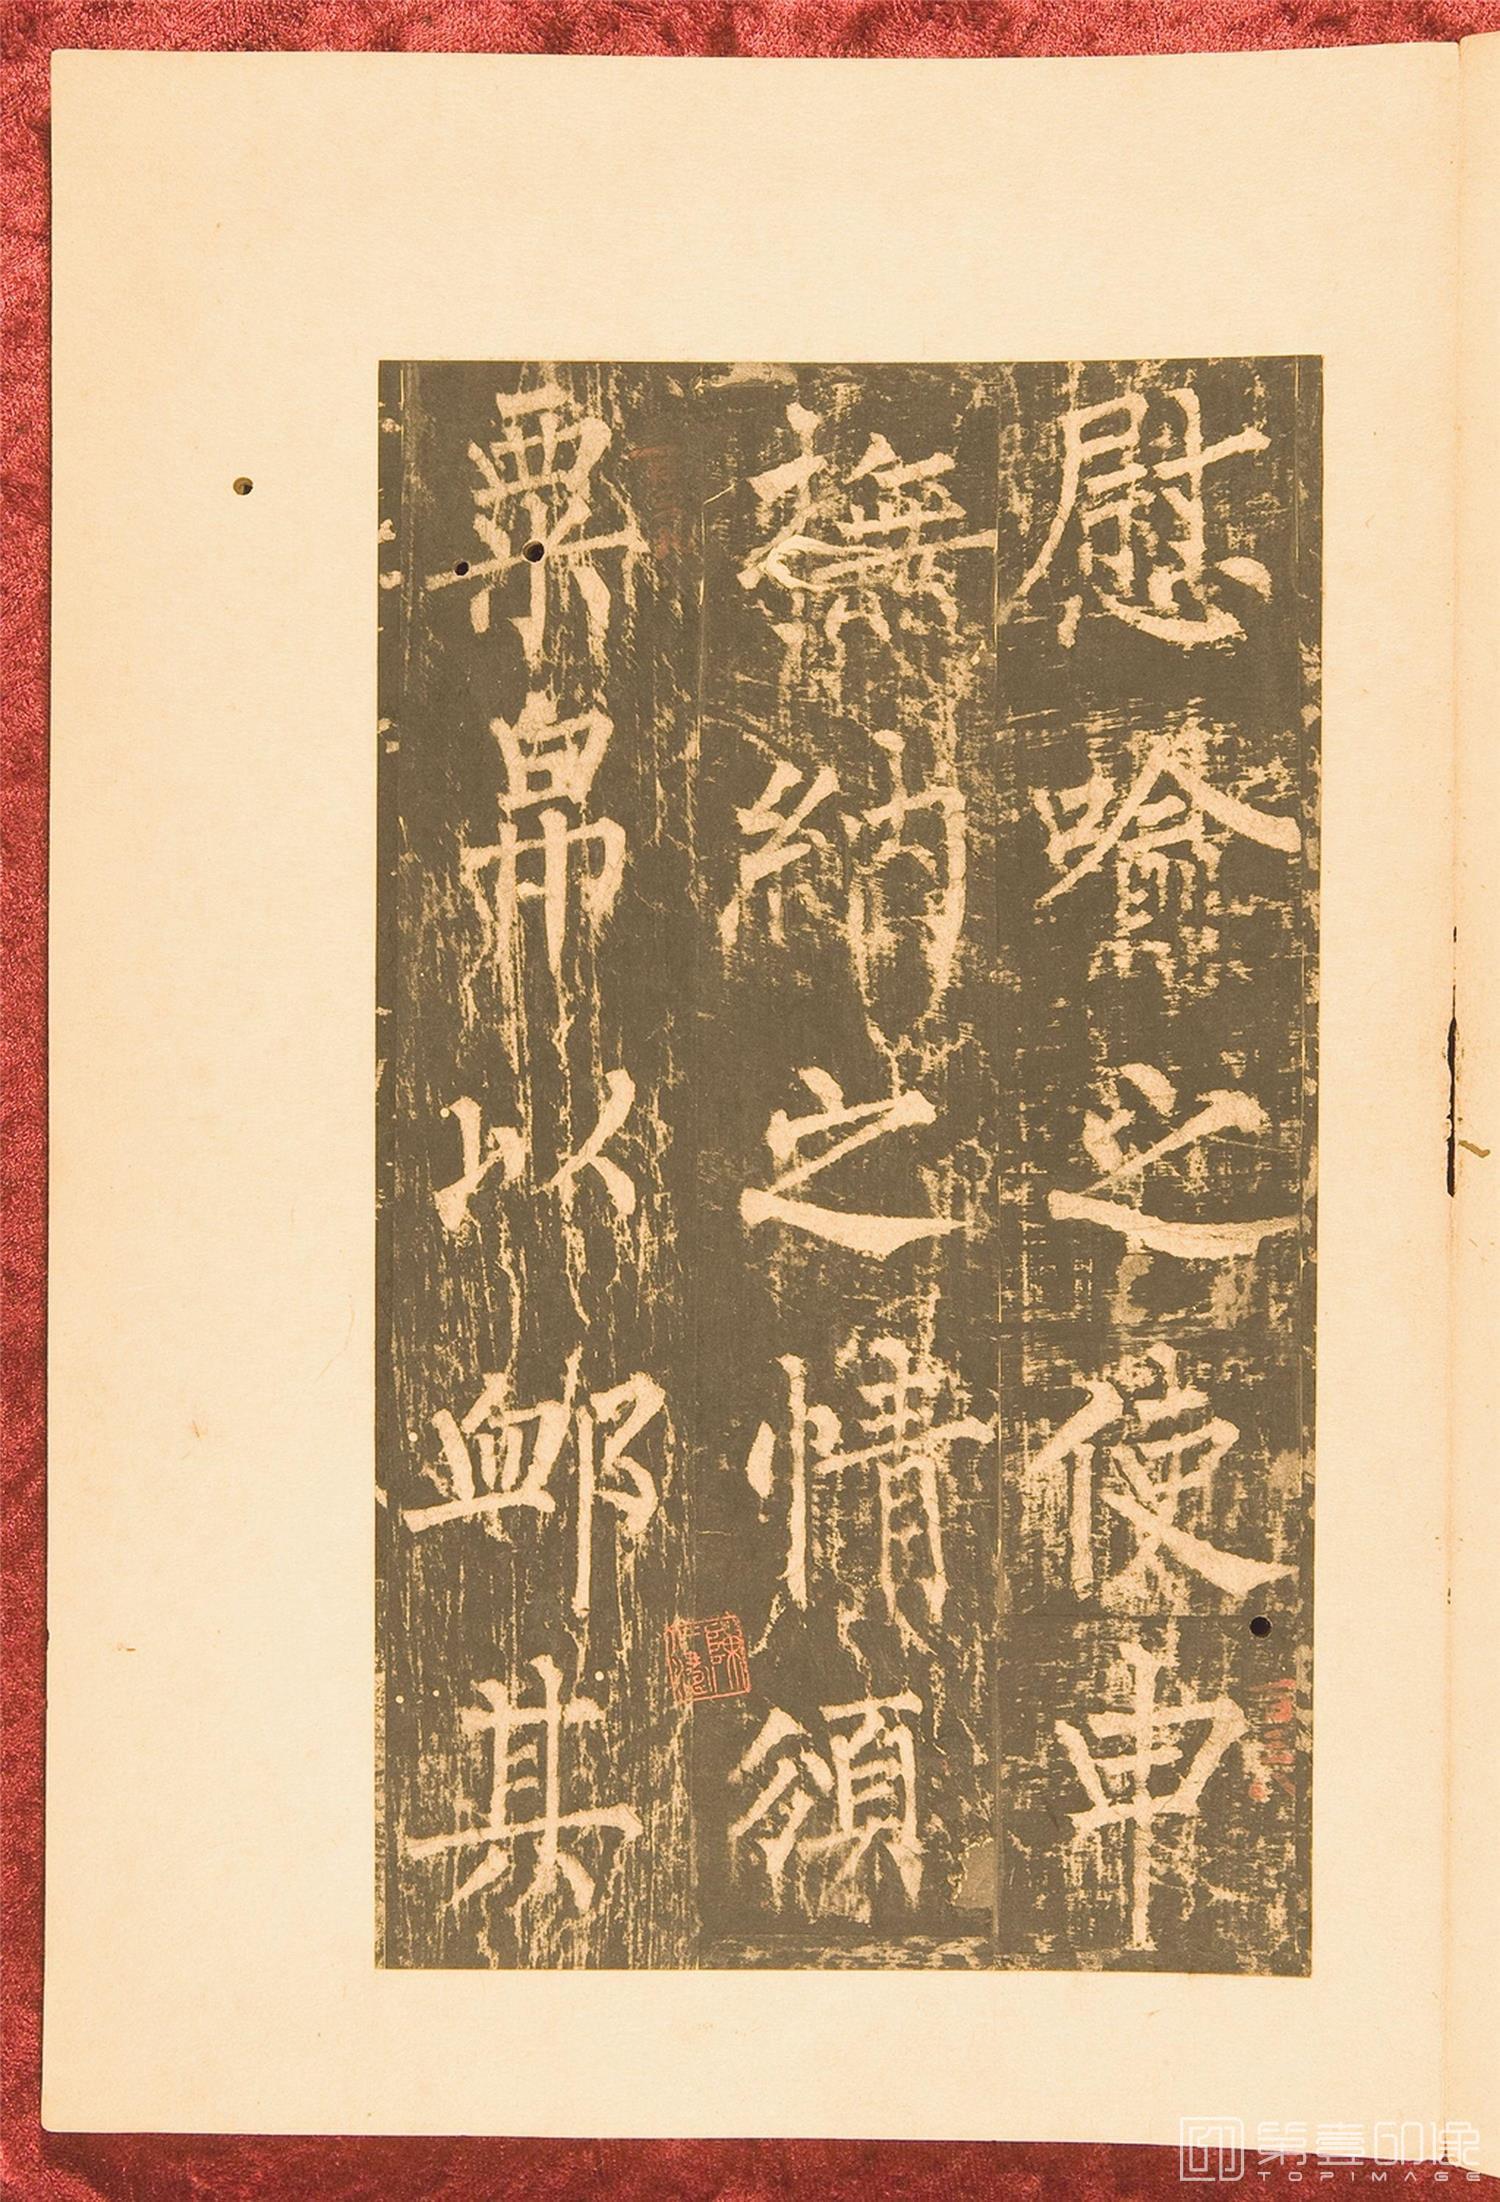 慰喻之使申
撫納之情頒
粟帛以衈其
第壹印像
TOPIMAGE